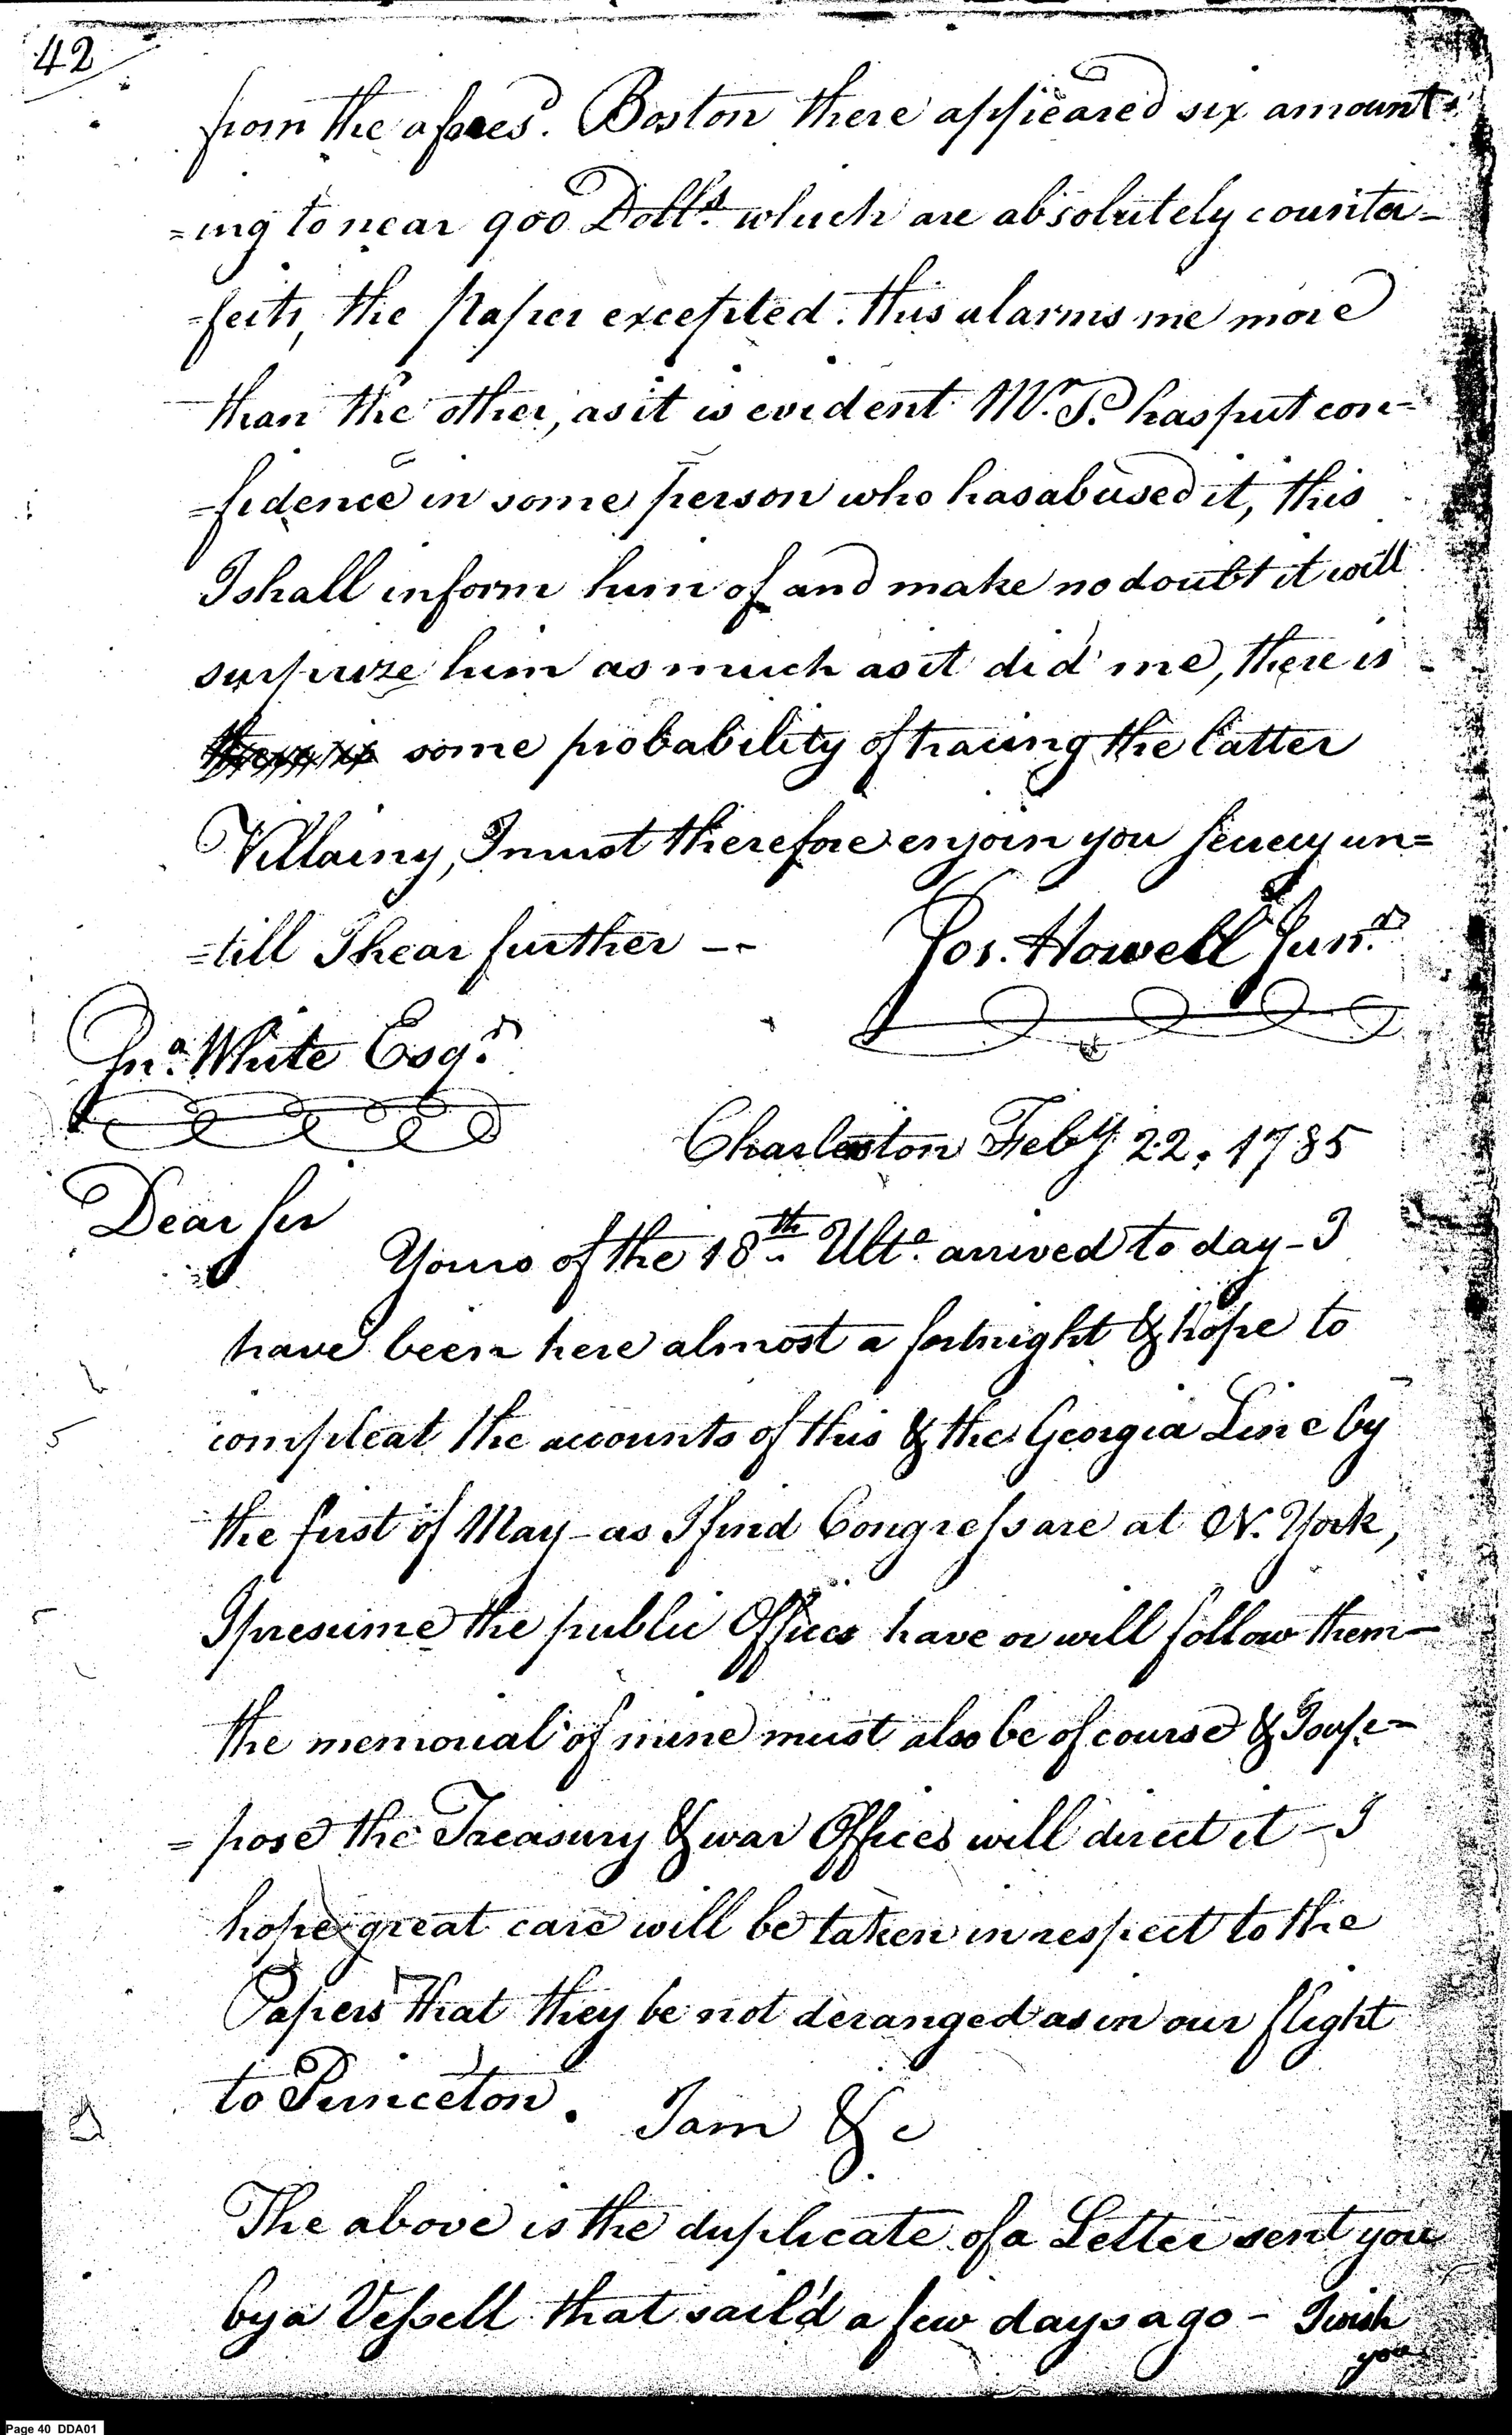 42
from the afores.d Boston there appeared six amount-
=ing to near 900 Doll.s which are absolutely counter-
=feits, the Paper excepted. this alarms me more
than the other, as it is evident M.r P. has put con-
=fidence in some person who has abused it, this
I shall inform him of and make no doubt it will
surprize him as much as it did me, there is
some probability of tracing the latter
Villainy, I must therefore enjoin you secrecy un=
=till I hear further --
Jos. Howell Jun.r
Jn.o White Esq.r
Charleston Feb.y 22. 1785
Dear Sir
Yours of the 18.th Ult.o arrived to day - I
have been here almost a fortnight & hope to
compleat the accounts of this & the Georgia Line by
the first of May - as I find Congress are at N. York,
I presume the public Offices have or will follow them -
the memorial of mine must also be of course & I sup-
=pose the Treasury & war Offices will direct it - I
hope great care will be taken in respect to the
Papers that they be not deranged as in our flight
to Princeton. I am &c
The above is the duplicate of a Letter sent you
by a Vessell that sail'd a few days ago - I wish
you
Page 40 DDA01